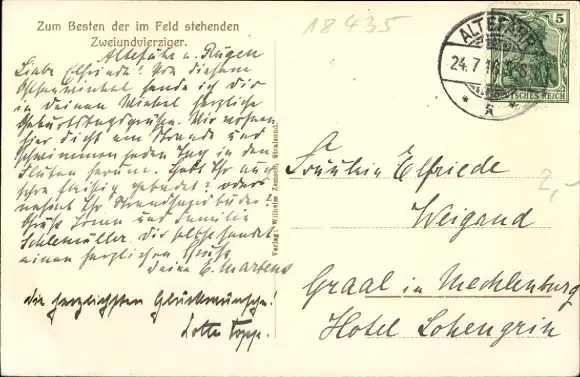 Zum Besten der im Feld stehenden
Zweiundvierziger.
18435
Altefähr a. Rügen
Liebe Elfriede! Von diesem
Ostseewinkel sende ich dir
in deinen Winkel herzliche
Geburtstagsgrüße. Wir wohnen
hier dicht am Strande und
schwimmen jeden Tag in den
Fluten herum. Habt Ihr auch
schon fleißig gebadet? oder
nehmt Ihr Strandbäder?
Grüße Deinen und Familie
Schlemüller. Dir selbst sendet
einen herzlichen Gruß
deine E. Martens
die herzlichsten Glückwünsche!
Lotte Topp.
Verlag: Wilhelm Zemsch, Stralsund.
ALTEFÄHR
24.7.16
5
DEUTSCHES REICH
Fräulein Elfriede
Weigand
Graal in Mecklenburg
Hotel Lohengrin
2,-